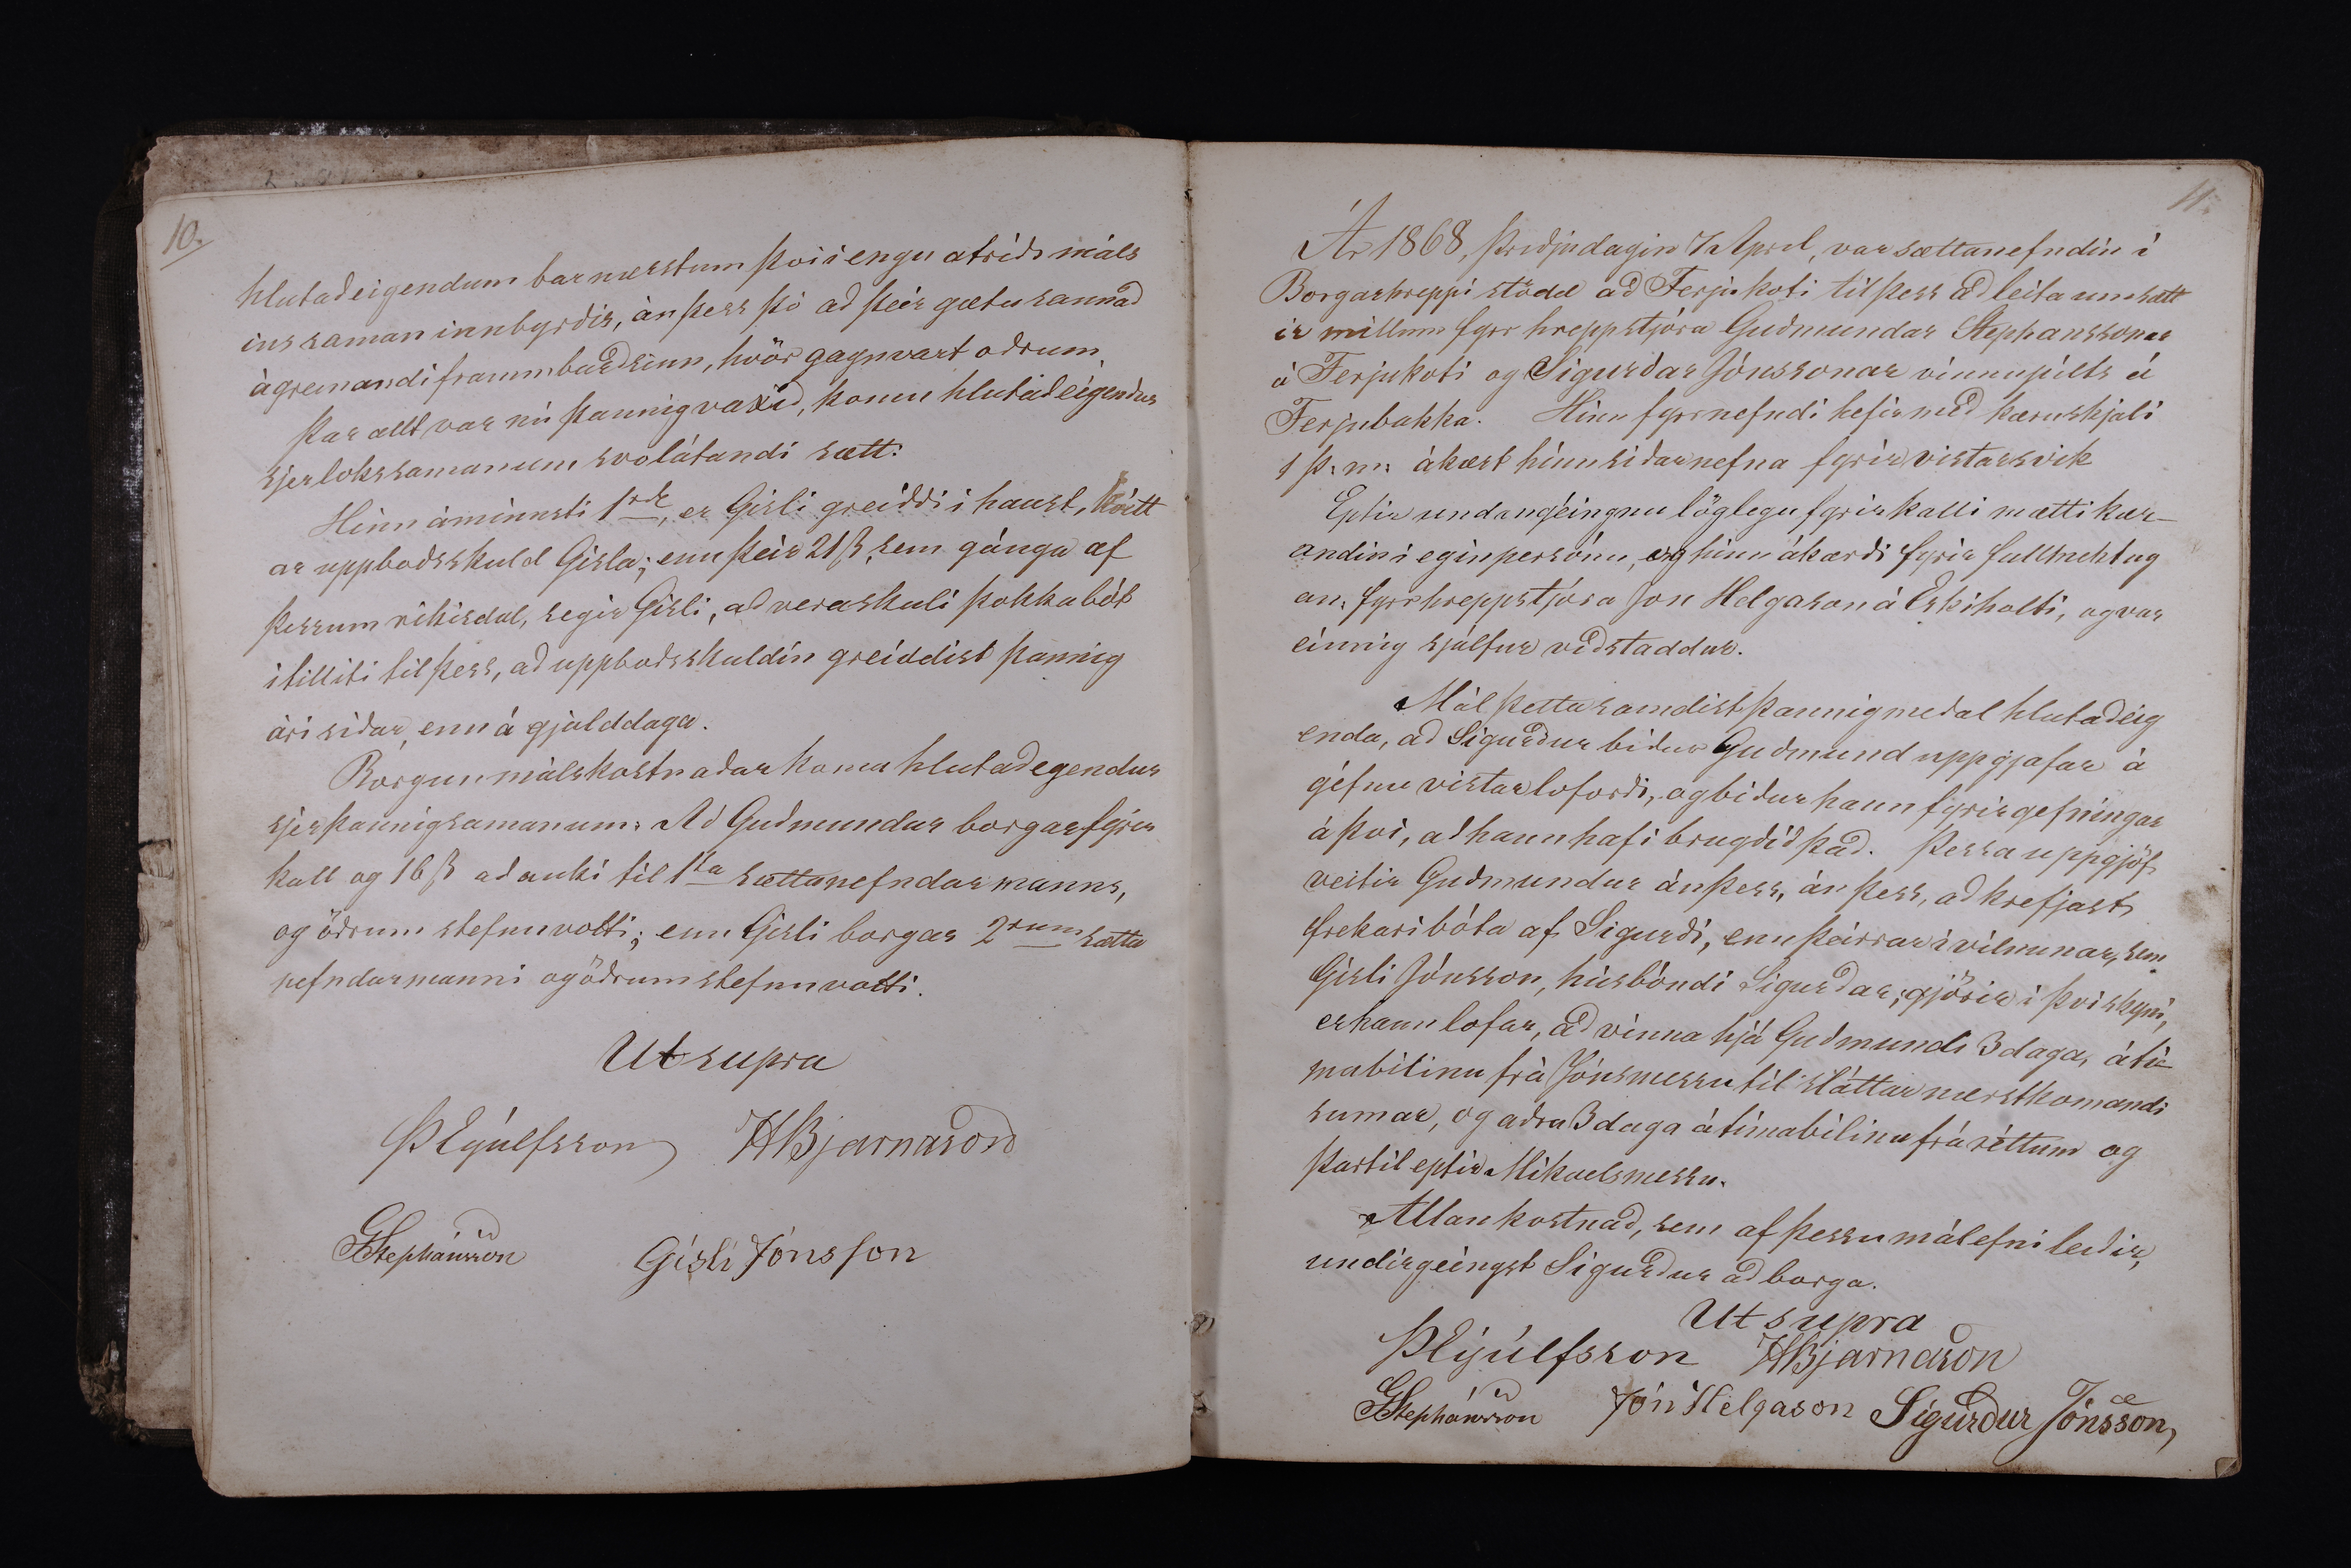 10.
hlutaðeigendum bar næstum því i engu atriði máls
ins saman innbyrðis, án þess þó að þeir gætu sannað
ágreinandi frammburð sinn, hvör gagnvart oðrum.
Þar allt var nú þannig vaxið, komu hlutaðeigendur
sjer loks saman um svolátandi sætt:
Hinn áminnsti 1 rdr, er Gisli greiddi i haust, kvitt
ar uppboðsskuld Gisla; enn þeir 21 ß, sem gánga af
þessum rikisdal, segir Gisli, að vera skuli þokkabót
i tilliti til þess, að uppboðsskuldin greiddist þannig
ári siðar, enn á gjalddaga.
Borgun málskostnaðar koma hlutaðegendur
sjer þannig saman um: Að Guðmundur borgar fyrir
kall og 16 ß að auki til 1sta sættanefndar manns,
og öðrum stefnuvotti; enn Gisli borgar 2rum sætta
nefndarmanni og öðrum stefnuvotti.
Ut supra
ÞEyúlfsson HBjarnason
GStephánsson Gísli Jónsson
11.
Ár 1868, þriðjudagin 7 April, var sættanefndin i
Borgarhreppi stödd að Ferjukoti til þess að leita um sætt
ir millum fyrr hreppstjóra Guðmundar Stephanssonar
á Ferjukoti og Sigurðar Jónssonar vinnupilts á
Ferjubakka. Hinn fyrrnefndi hefir með kæruskjali
1 þ: m: ákært hinn siðarnefna fyrir vistarsvik
Eptir undangéingnu löglegu fyrirkalli mætti kær-
andin i egin persónu, og hinn ákærði fyrir fullmektug
an, fyrrhreppstjóra Jon Helgason á Eskiholti, og var
einnig sjálfur viðstaddur.
Mál þetta samdist þannig meðal hlutaðeig
enda, að Sigurður biður Guðmund uppgjafar á
géfnu vistarloforði, og biður hann fyrirgefningar
á því, að hann hafi brugðið það. Þessa uppgjöf
veitir Guðmundur án þess, án þess, að krefjast
frekari bóta af Sigurði, enn þeirrar ivilnunar, sem
Gisli Jónsson, húsbóndi Sigurðar, gjörir i því skyni,
er hann lofar, að vinna hjá Guðmundi 3 daga, á tí
mabilinu frá Jónsmessu til sláttar næstkomandi
sumar, og aðra 3 daga á tímabilinu frá réttum og
þartil eptir Mikaelsmessu.
Allan kostnað, sem af þessu málefni leiðir,
undirgeingst Sigurður að borga.
Ut supra
ÞEyúlfsson HBjarnason
GStephánsson Jón Helgason Sigurður Jónsson,